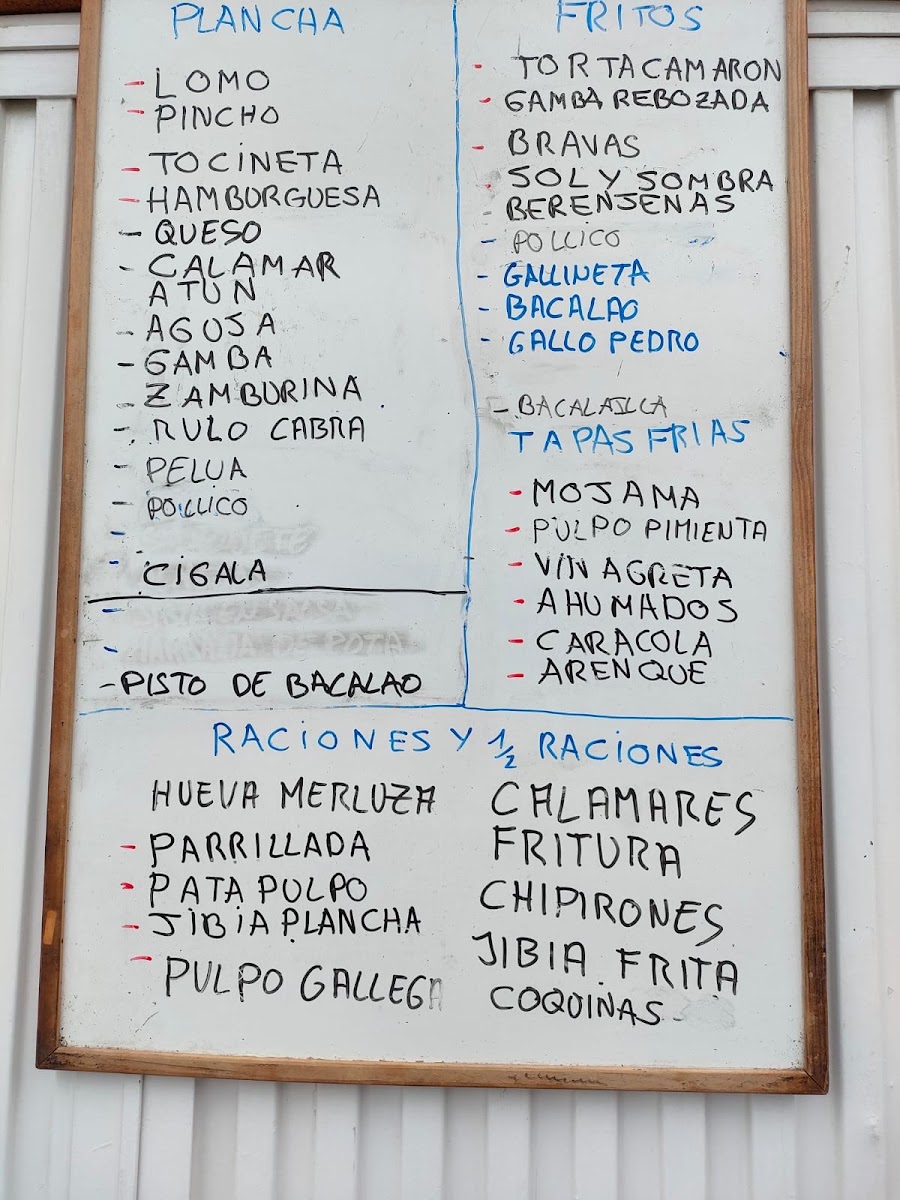 PLANCHA
- LOMO
- PINCHO
- TOCINETA
- HAMBURGUESA
- QUESO
- CALAMAR
ATUN
- AGUJA
- GAMBA
- ZAMBURINA
- RULO CABRA
- PELUA
- POLLICO
-
- CIGALA
-
-
- PISTO DE BACALAO
FRITOS
- TORTACAMARON
- GAMBA REBOZADA
- BRAVAS
- SOL Y SOMBRA
- BERENJENAS
- POLLICO
- GALLINETA
- BACALAO
- GALLO PEDRO
- BACALAILLA
TAPAS FRIAS
- MOJAMA
- PULPO PIMIENTA
- VINAGRETA
- AHUMADOS
- CARACOLA
- ARENQUE
RACIONES Y 1/2 RACIONES
HUEVA MERLUZA
- PARRILLADA
- PATA PULPO
- JIBIA PLANCHA
- PULPO GALLEGA
CALAMARES
FRITURA
CHIPIRONES
JIBIA FRITA
COQUINAS